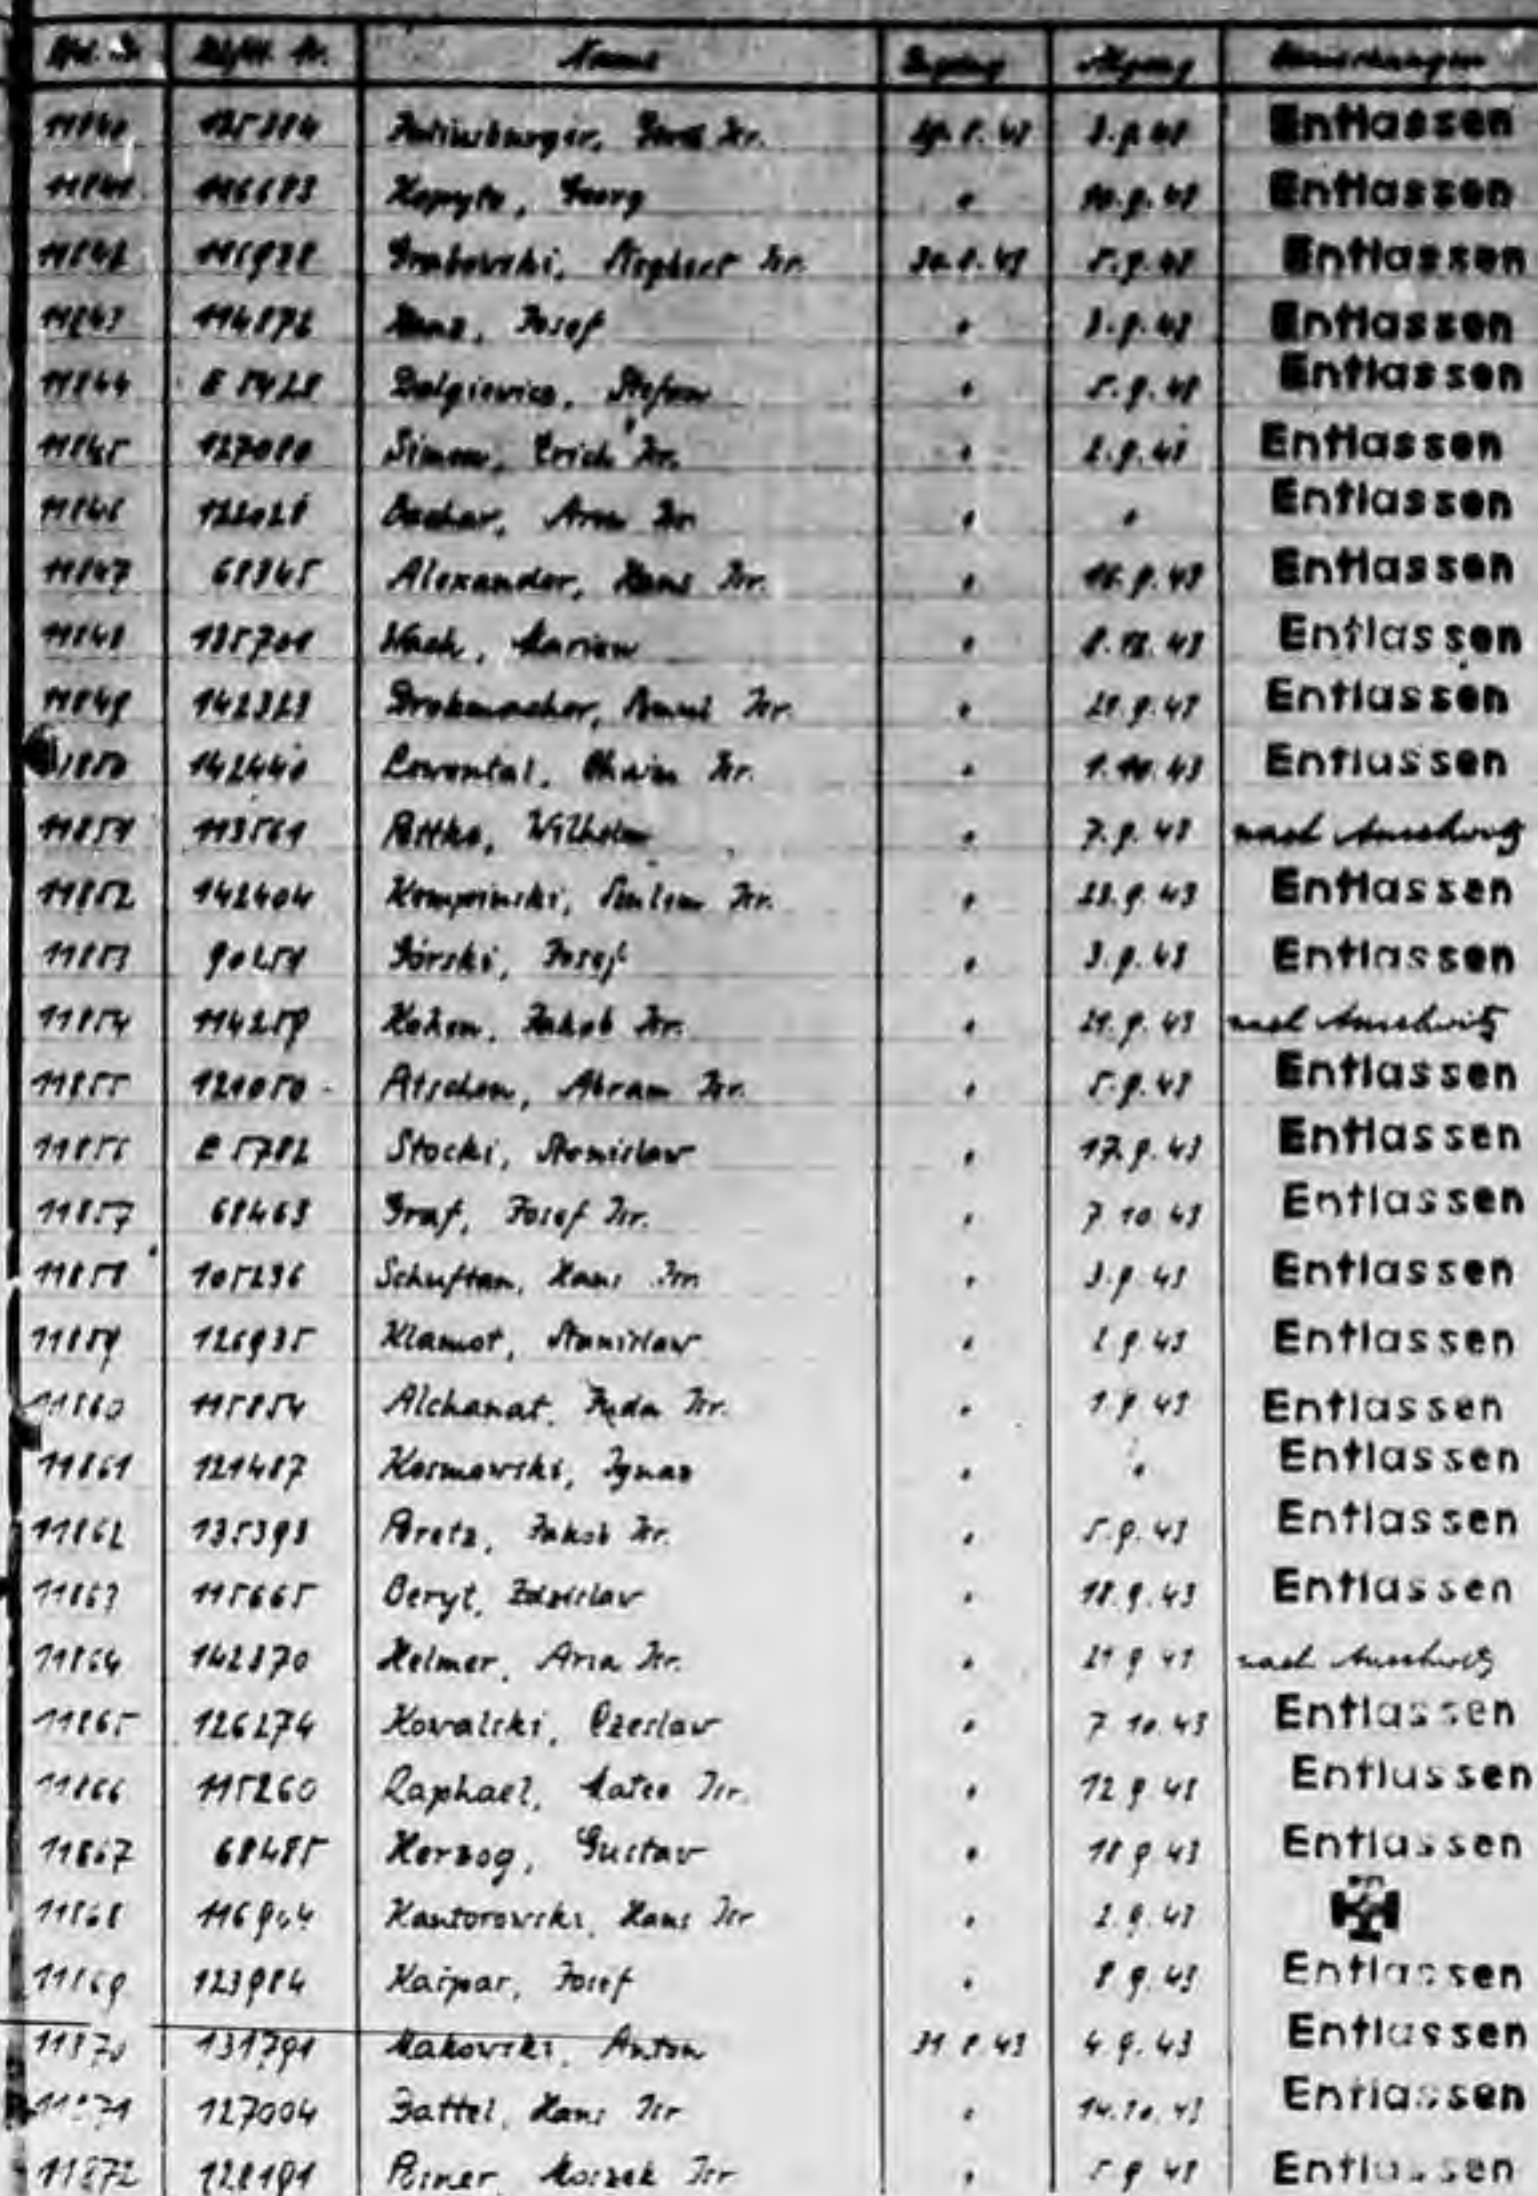 Lfd. Nr. Häftl. Nr. Name Zugang Abgang Bemerkungen
11840 Isr. 43 Entlassen
11841 116683 Kopyto, Georg " 10.9.43 Entlassen
11842 Grabowski, Isr. 30.8.43 5.9.43 Entlassen
11843 114872 Josef " 3.9.43 Entlassen
11844 Stefan " 5.9.43 Entlassen
11845 127080 Simon, Erich Isr. " 2.9.43 Entlassen
11846 Isr. " " Entlassen
11847 68345 Alexander, Hans Isr. " 16.9.43 Entlassen
11848 135701 Wach, Marian " 8.12.43 Entlassen
11849 142323 Isr. " 43 Entlassen
11850 142440 Lewental, Chaim Isr. " 1.10.43 Entlassen
11851 113561 Wilhelm " 7.9.43 nach Auschwitz
11852 142404 Isr. " 23.9.43 Entlassen
11853 90251 Górski, Josef " 3.9.43 Entlassen
11854 114259 Kohen, Jakob Isr. " 21.9.43 nach Auschwitz
11855 121050 Abram Isr. " 5.9.43 Entlassen
11856 E 5782 Stocki, Stanislaw " 17.9.43 Entlassen
11857 68463 Graf, Josef Isr. " 7.10.43 Entlassen
11858 105236 Schuftan, Hans Isr. " 3.9.43 Entlassen
11859 126935 Klamot, Stanislaw " 2.9.43 Entlassen
11860 115854 Alchanat, Juda Isr. " 1.9.43 Entlassen
11861 121487 Kosmowski, Ignaz " " Entlassen
11862 135393 Jakob Isr. " 5.9.43 Entlassen
11863 115665 Beryt, Zdzislaw " 18.9.43 Entlassen
11864 142370 Helmer, Aria Isr. " 21.9.43 nach Auschwitz
11865 126274 Kowalski, Czeslaw " 7.10.43 Entlassen
11866 115260 Raphael, Mateo Isr. " 12.9.43 Entlassen
11867 68485 Herzog, Gustav " 18.9.43 Entlassen
11868 116944 Kantorowski, Hans Isr. " 2.9.43
11869 123984 Kaspar, Josef " 8.9.43 Entlassen
11870 131791 Makowski, Anton 31.8.43 4.9.43 Entlassen
11871 127004 Zattel, Hans Isr. " 14.10.43 Entlassen
11872 128191 Posner, Moszek Isr. " 5.9.43 Entlassen